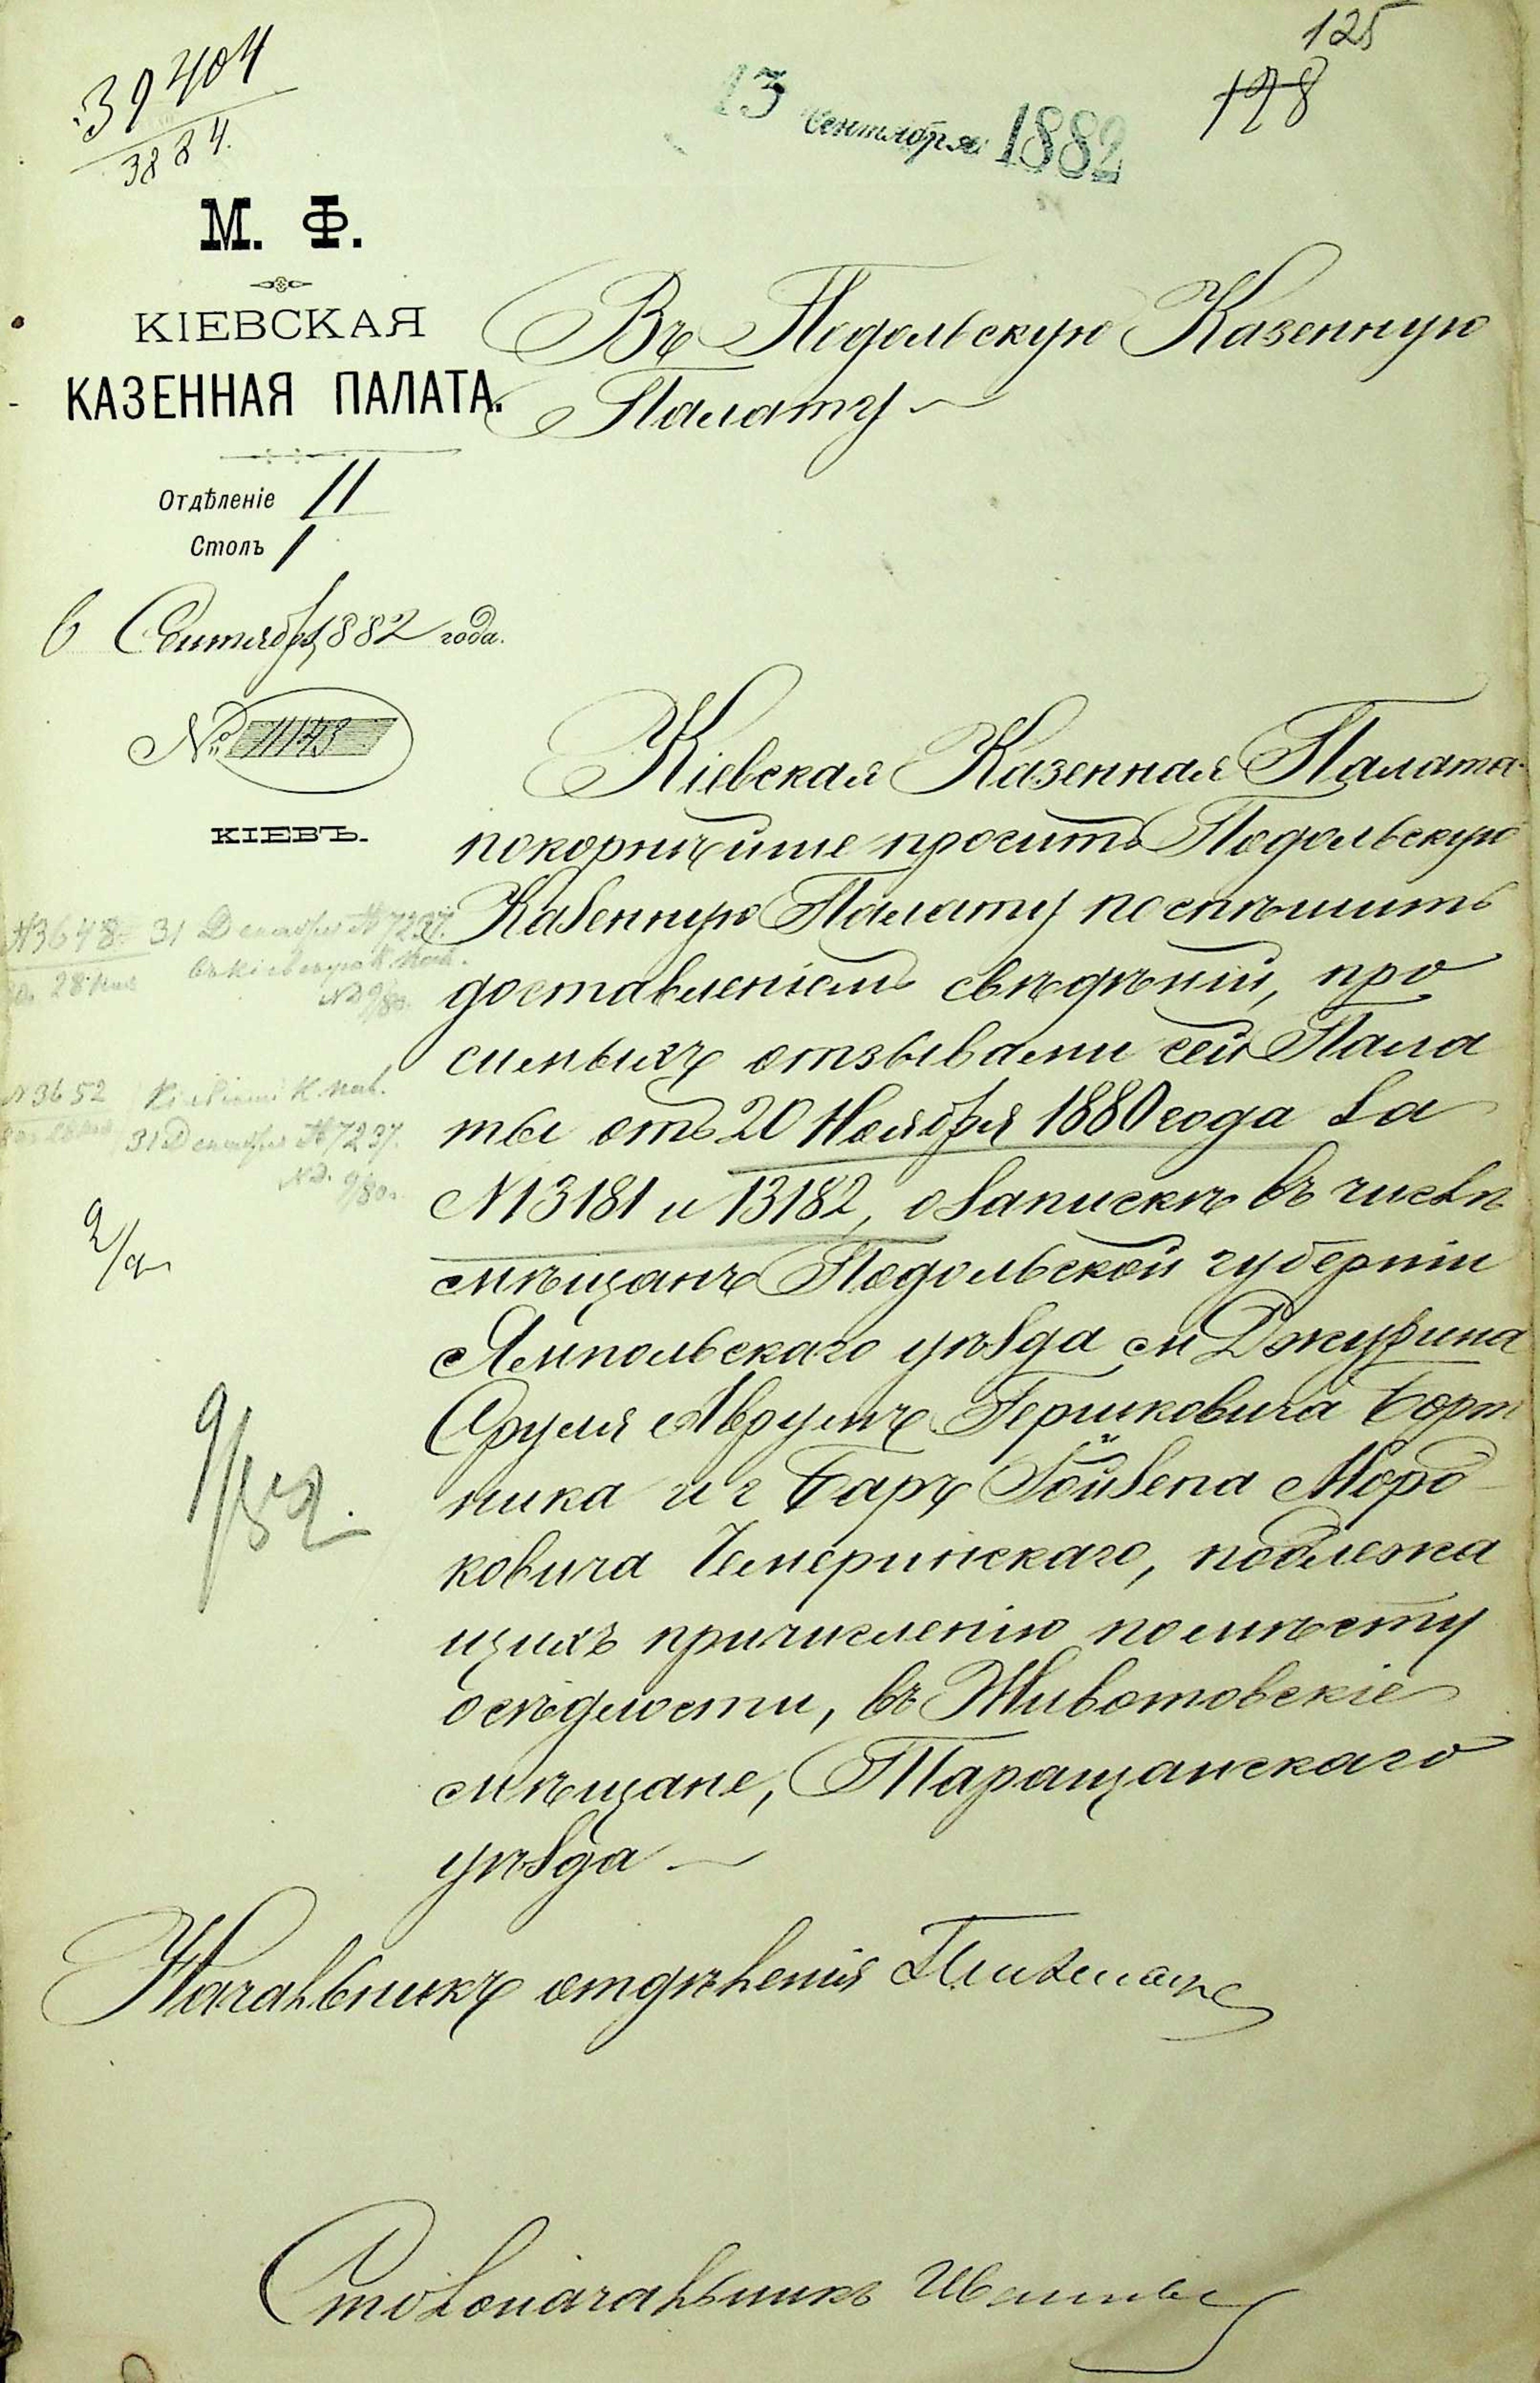 125
128
39404
3884.
13 Сентября 1882
М. Ф.
КІЕВСКАЯ
КАЗЕННАЯ ПАЛАТА.
Отдѣленіе II
Столъ 1
6 Сентября 1882 года.
№ 11143
КІЕВЪ.
Въ Подольскую Казенную
Палату
Кіевская Казенная Палата
покорнѣйше проситъ Подольскую
Казенную Палату поспѣшить
доставленіемъ свѣдѣній, про
симыхъ отзывами сей Пала
ты отъ 20 Ноября 1880 года за
№ 13181 и 13182, о запискѣ въ числѣ
мѣщанъ Подольской губерніи
Ямпольскаго уѣзда м Джурина
Сруля Аврумъ Гершковича Борт
ника и г Баръ Іойзепа Морд
ковича Чемеринскаго, подлежа
щихъ причисленію по мѣсту
осѣдлости, въ Животовскіе
мѣщане, Таращанскаго
уѣзда
№3648 31 Декабря №7237.
въ Кіевскую К. Пал.
№ 9/80.
№3652 Кіевской К. пал.
31 Декабря №7237.
№ д. 9/80.
9/82.
Начальникъ отдѣленія
Столоначальникъ